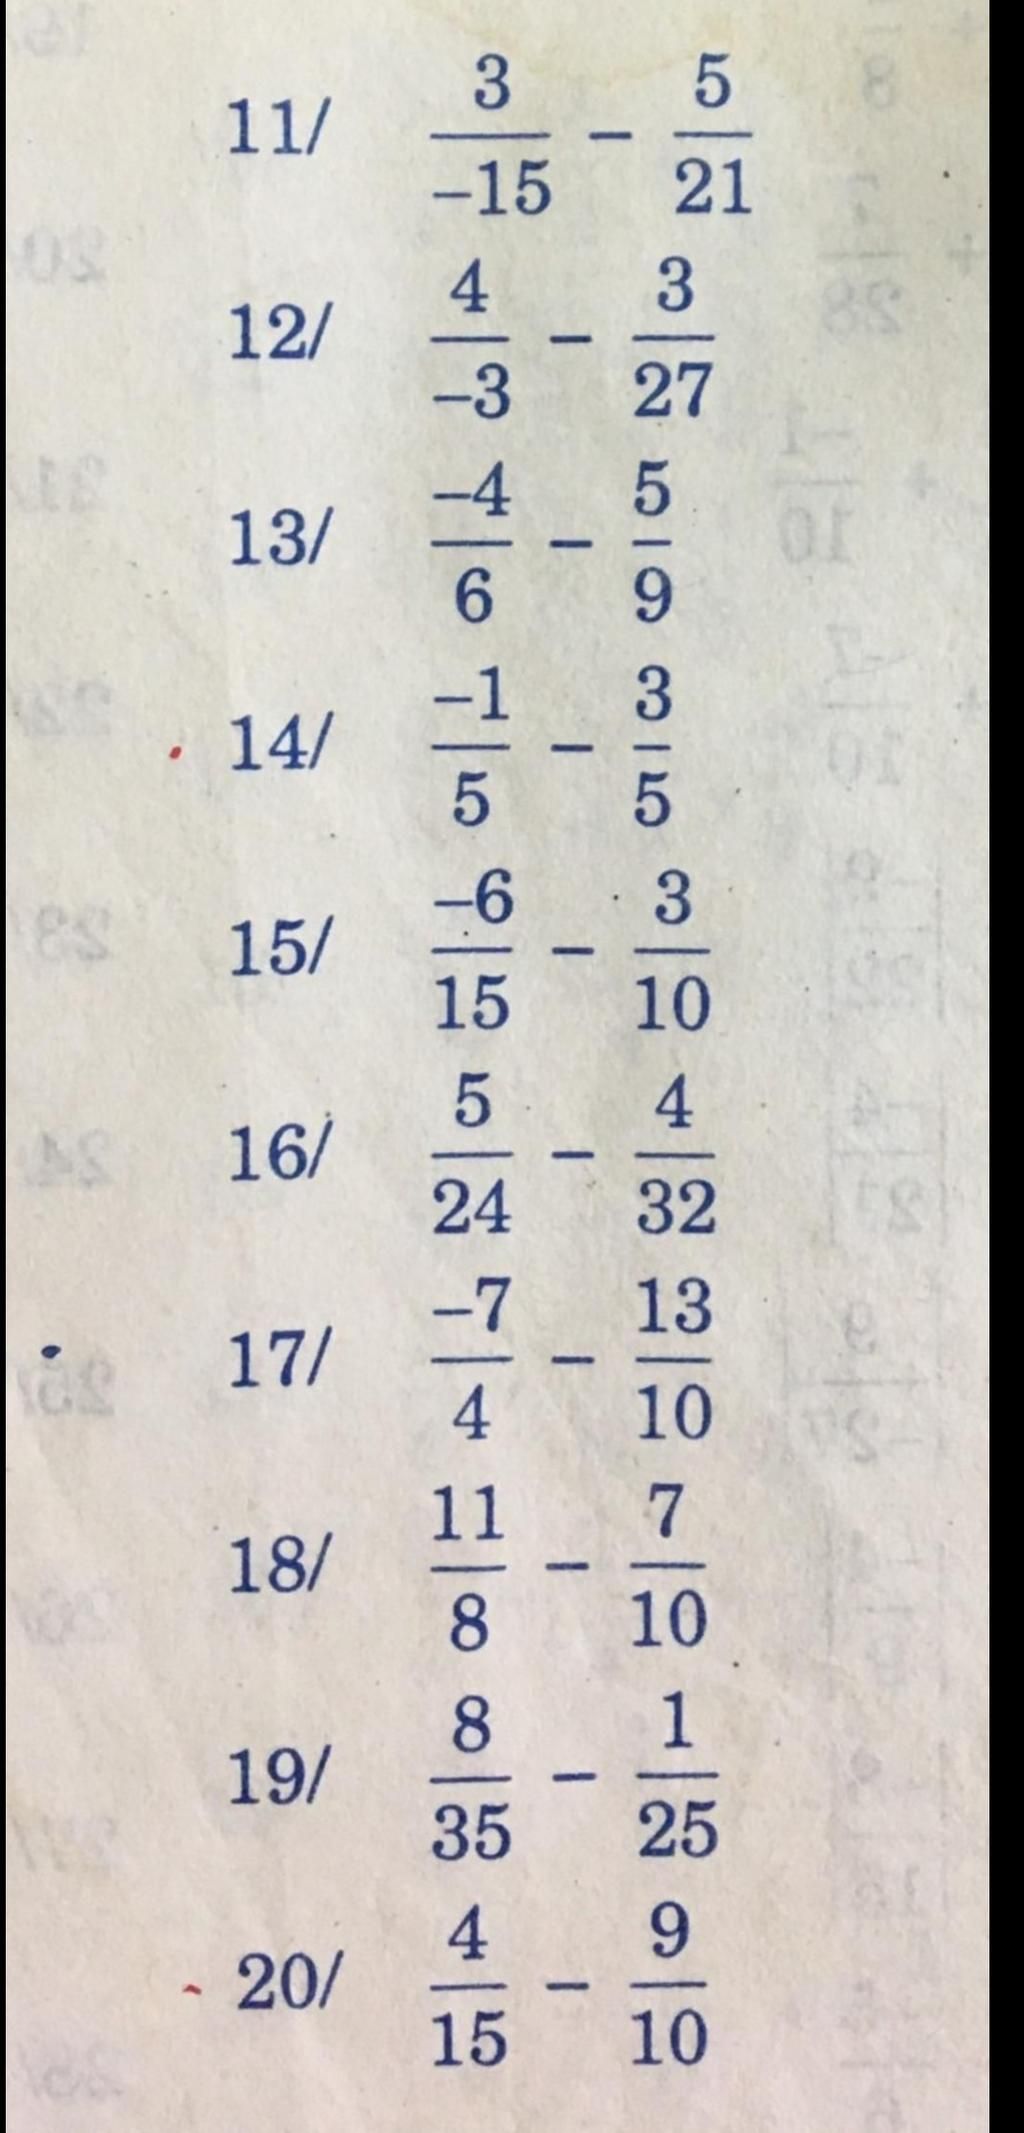 11/ 3/-15 - 5/21
12/ 4/-3 - 3/27
13/ -4/6 - 5/9
14/ -1/5 - 3/5
15/ -6/15 - 3/10
16/ 5/24 - 4/32
17/ -7/4 - 13/10
18/ 11/8 - 7/10
19/ 8/35 - 1/25
20/ 4/15 - 9/10